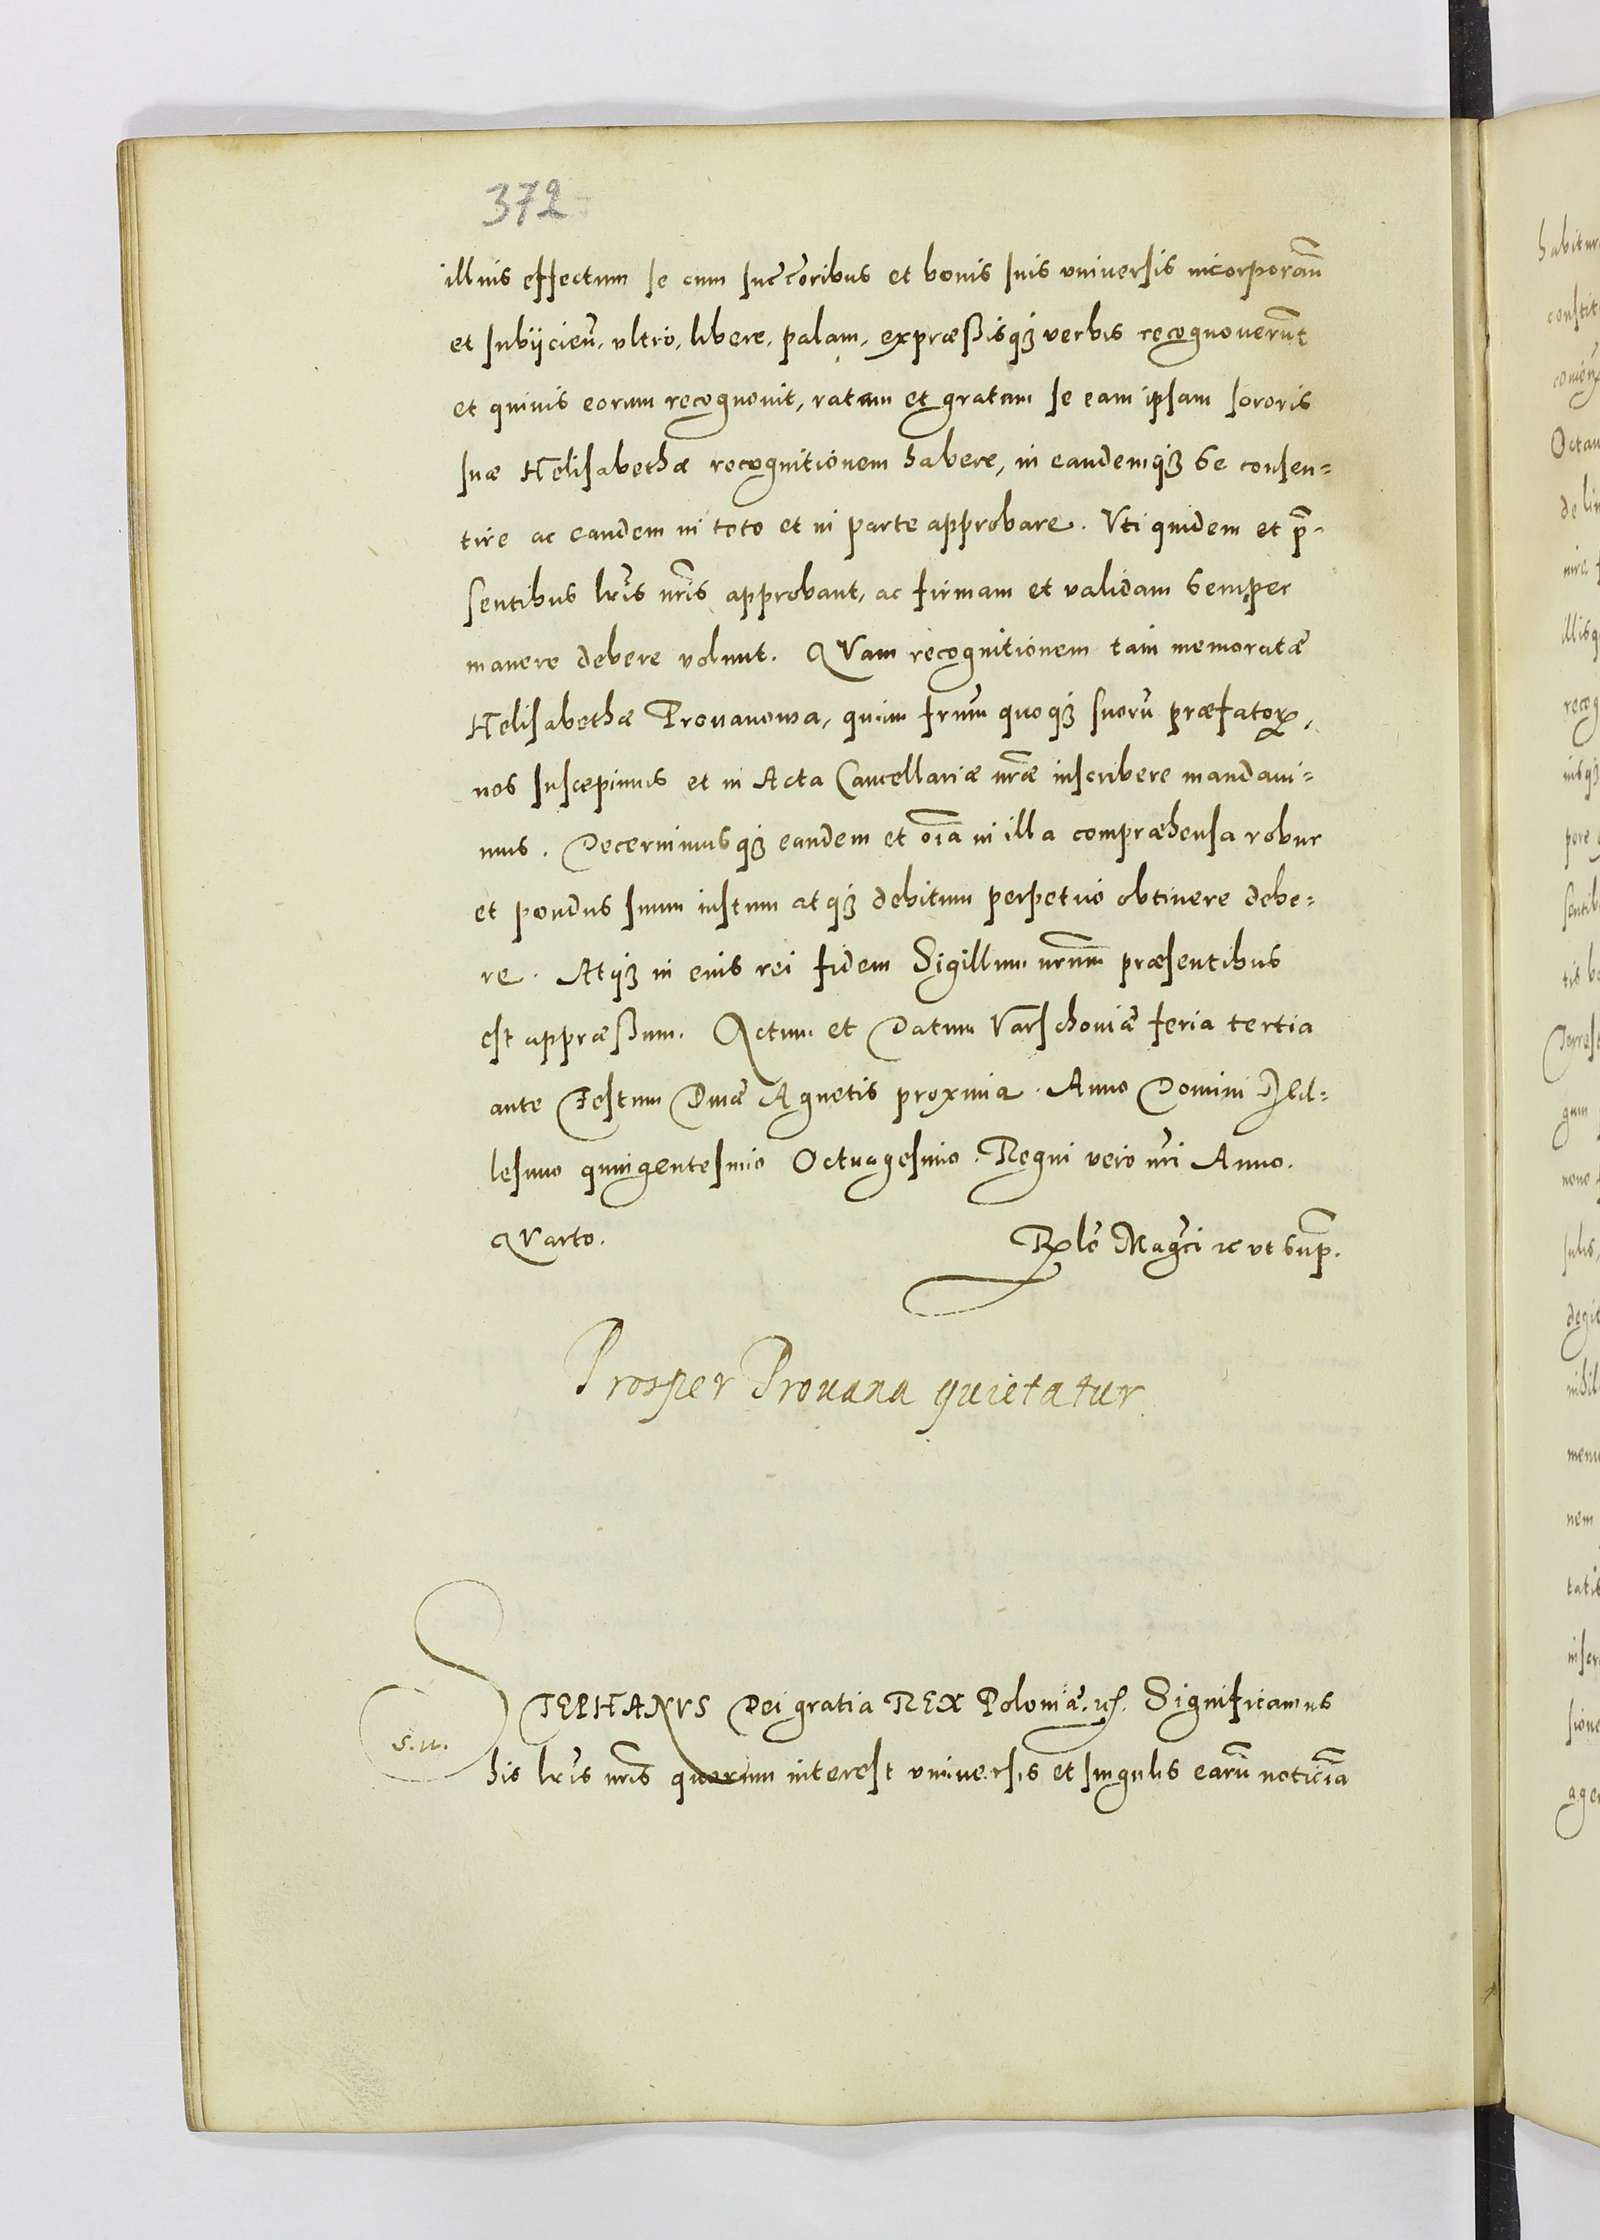 372
illius effectum se cum succoribus et bonis suis vniversis incorporañ
et subijcieñ, vltro, libere, palam, expræssisqꝫ verbis recognouerũt
et quiuis eorum recognouit, ratam et gratam se eam ipsam sororis
suæ Helisabethæ recognitionem habere, in eandemqꝫ se consen=
tire ac eandem in toto et in parte approbare. Vti quidem et p̃=
sentibus lr̃is nr̃is approbant, ac firmam et validam semper
manere debere volunt. QVam recognitionem tam memoratæ
Helisabethæ Prouanowa, quam fr̃um quoqꝫ suorũ præfatoꝝ,
nos suscepimus et in Acta Cancellariæ nr̃æ inscribere mandaui=
mus. Decernimusqꝫ eandem et oĩa in illa compræhensa robur
et pondus suum iustum atqꝫ debitum perpetuo obtinere debe=
re. Atqꝫ in eius rei fidem Sigillum nr̃um præsentibus
est appræssum. Actum et Datum Varschouiæ feria tertia
ante Festum Diuæ Agnetis proxima. Anno Domini Mil=
lesimo quingentesimo Octuagesimo. Regni vero nr̃i Anno.
QVarto.
Rlõ Magci ꝛc vt sup̃.
Prosper Prouana quietatur
s. n.
STEPHANVS Dei gratia REX Poloniæ. ꝛc. Significamus
his lr̃is nr̃is quorum interest vniuersis et singulis earũ noticiã